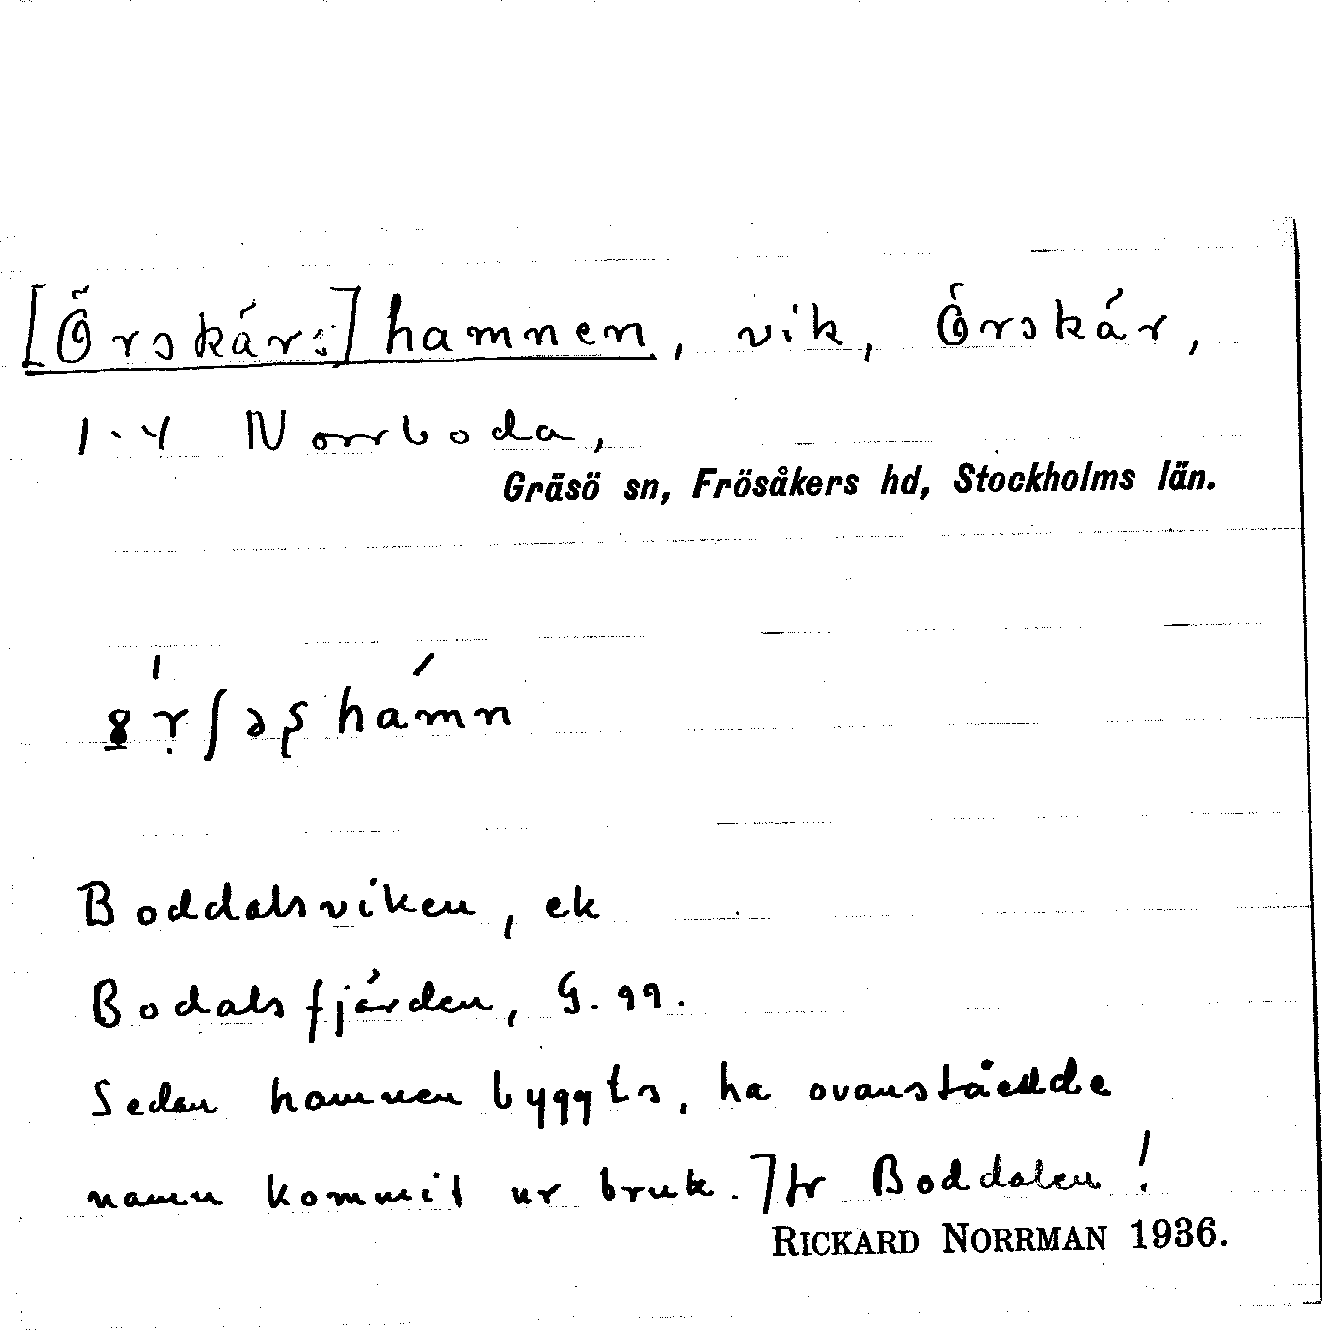 [Örskärs]hamnen, vik, Örskär,
1-4 Norrboda,
Gräsö sn, Frösåkers hd, Stockholms län.
hamn
Boddalsviken, ek
Bodalsfjärden, G. 99.
Sedan hamnen byggts, ha ovanstående
namn kommit ur bruk. Jfr Boddalen!
RICKARD NORRMAN 1936.